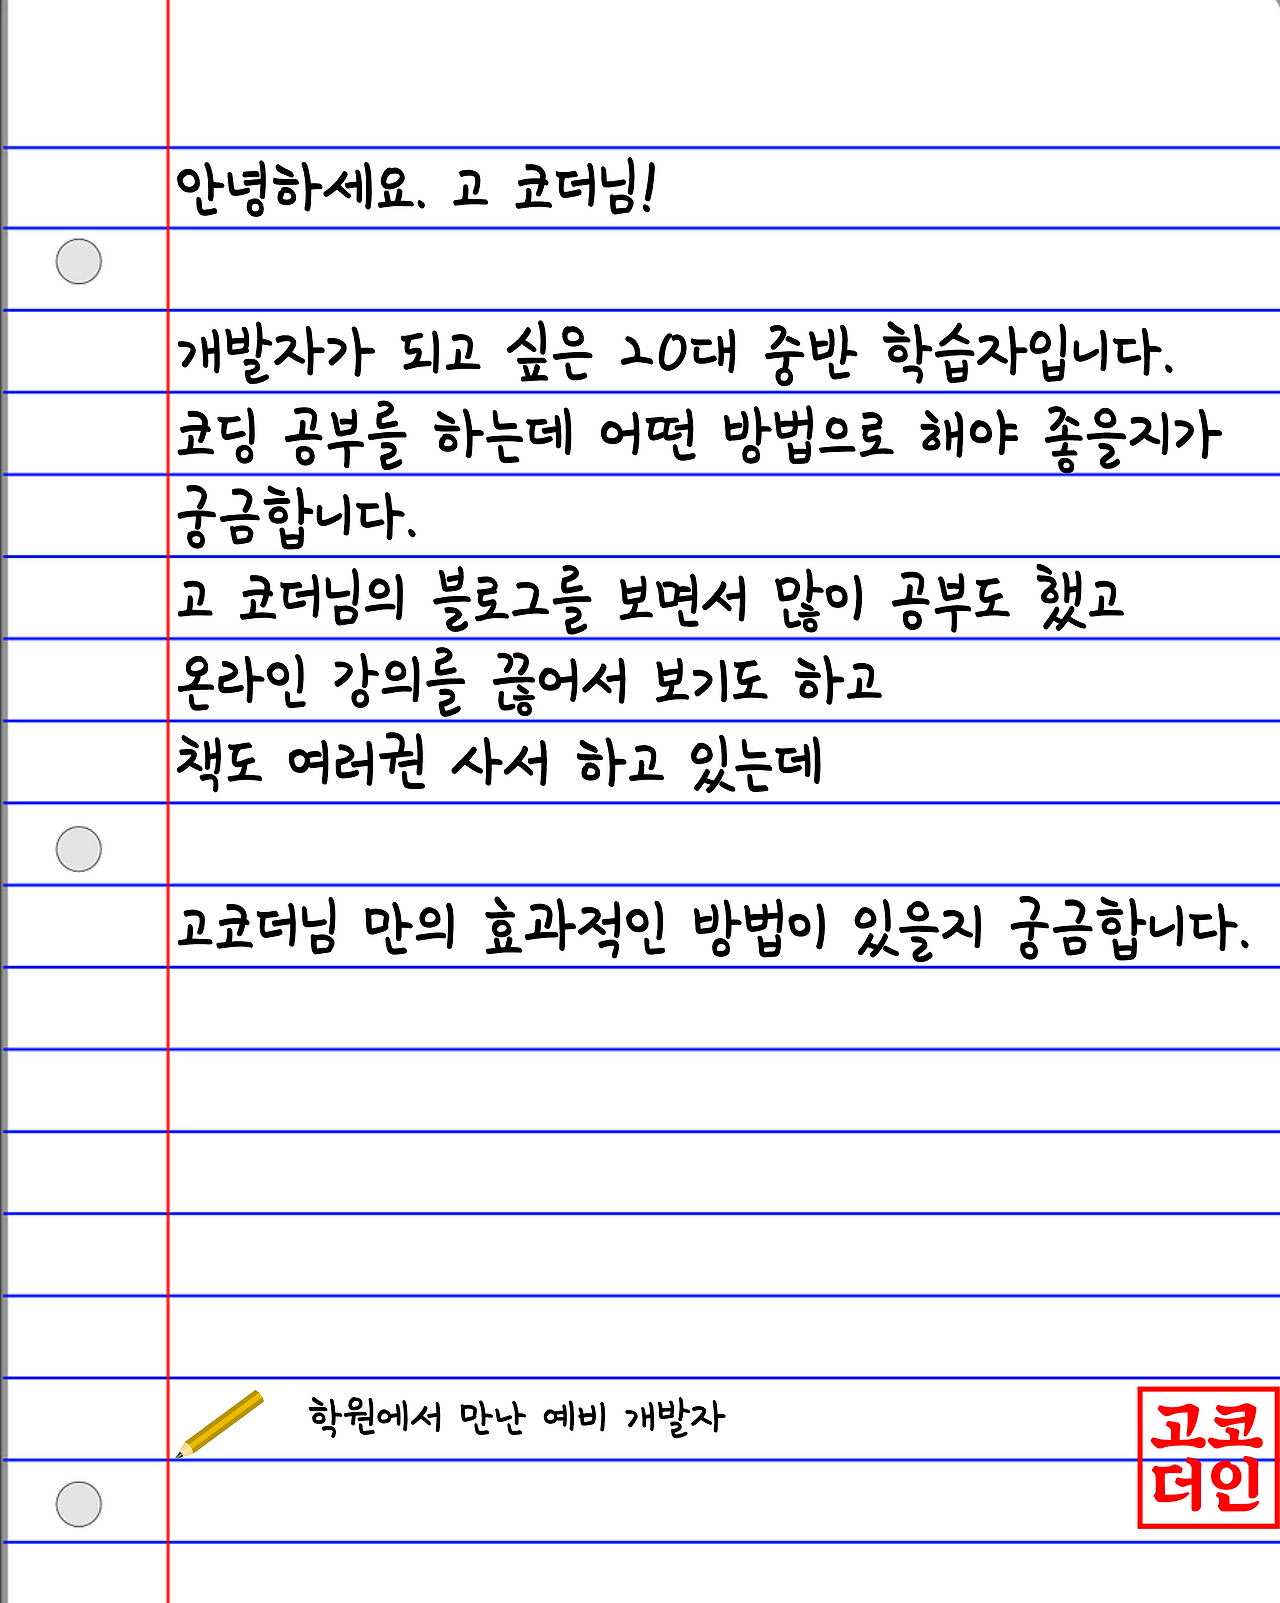 안녕하세요. 고 코더님!
개발자가 되고 싶은 20대 중반 학습자입니다.
코딩 공부를 하는데 어떤 방법으로 해야 좋을지가
궁금합니다.
고 코더님의 블로그를 보면서 많이 공부도 했고
온라인 강의를 끊어서 보기도 하고
책도 여러권 사서 하고 있는데
고코더님 만의 효과적인 방법이 있을지 궁금합니다.
학원에서 만난 예비 개발자
고코
더인